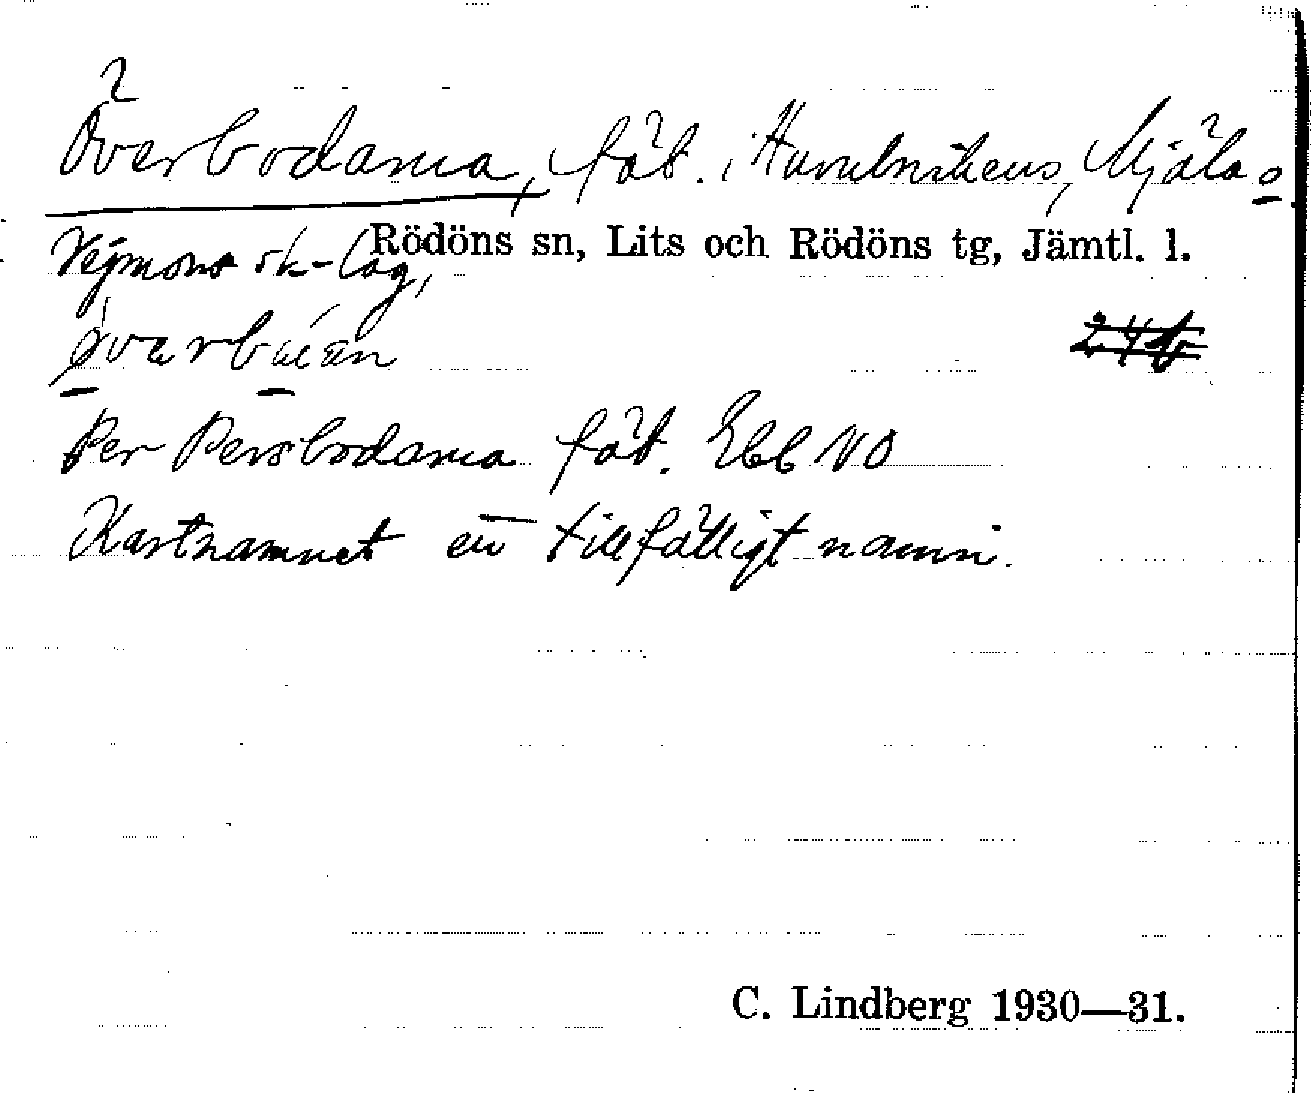 Överbodarna, fäb. i Hurulnikens, Mjäla o
Vejmons sk-lag, Rödöns sn, Lits och Rödöns tg, Jämtl. l.
övarbuan
24b
Per Persbodarna fäb. Ebl NO
Kartnamnet ett tillfälligt namn.
C. Lindberg 1930—31.